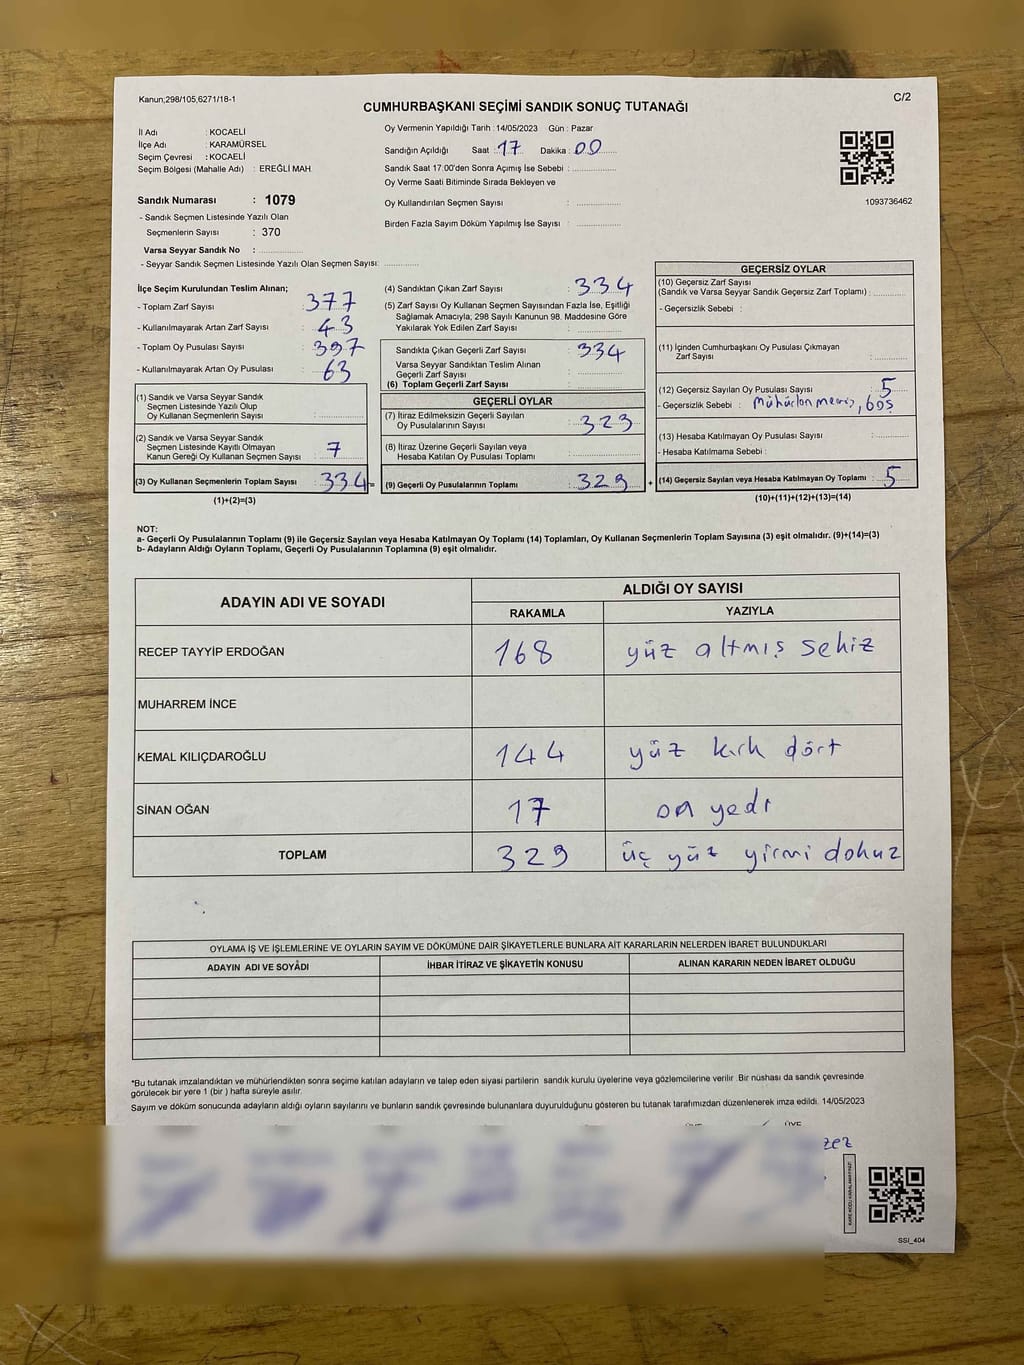 Kanun;298/105,6271/18-1
C/2
CUMHURBAŞKANI SEÇİMİ SANDIK SONUÇ TUTANAĞI
İl Adı : KOCAELİ
İlçe Adı : KARAMÜRSEL
Seçim Çevresi : KOCAELİ
Seçim Bölgesi (Mahalle Adı) : EREĞLİ MAH.
Sandık Numarası : 1079
- Sandık Seçmen Listesinde Yazılı Olan
Seçmenlerin Sayısı : 370
Varsa Seyyar Sandık No :
- Seyyar Sandık Seçmen Listesinde Yazılı Olan Seçmen Sayısı:
Oy Vermenin Yapıldığı Tarih :14/05/2023 Gün : Pazar
Sandığın Açıldığı Saat : 17 Dakika : 00
Sandık Saat 17.00'den Sonra Açımış İse Sebebi :
Oy Verme Saati Bitiminde Sırada Bekleyen ve
Oy Kullandırılan Seçmen Sayısı :
Birden Fazla Sayım Döküm Yapılmış İse Sayısı :
1093736462
İlçe Seçim Kurulundan Teslim Alınan;
- Toplam Zarf Sayısı : 377
- Kullanılmayarak Artan Zarf Sayısı : 43
- Toplam Oy Pusulası Sayısı : 397
- Kullanılmayarak Artan Oy Pusulası : 63
(1) Sandık ve Varsa Seyyar Sandık
Seçmen Listesinde Yazılı Olup
Oy Kullanan Seçmenlerin Sayısı :
(2) Sandık ve Varsa Seyyar Sandık
Seçmen Listesinde Kayıtlı Olmayan
Kanun Gereği Oy Kullanan Seçmen Sayısı : 7
(3) Oy Kullanan Seçmenlerin Toplam Sayısı : 334 =
(1)+(2)=(3)
(4) Sandıktan Çıkan Zarf Sayısı : 334
(5) Zarf Sayısı Oy Kullanan Seçmen Sayısından Fazla İse, Eşitliği
Sağlamak Amacıyla; 298 Sayılı Kanunun 98. Maddesine Göre
Yakılarak Yok Edilen Zarf Sayısı :
Sandıkta Çıkan Geçerli Zarf Sayısı : 334
Varsa Seyyar Sandıktan Teslim Alınan
Geçerli Zarf Sayısı :
(6) Toplam Geçerli Zarf Sayısı :
GEÇERLİ OYLAR
(7) İtiraz Edilmeksizin Geçerli Sayılan
Oy Pusulalarının Sayısı : 329
(8) İtiraz Üzerine Geçerli Sayılan veya
Hesaba Katılan Oy Pusulası Toplamı :
(9) Geçerli Oy Pusulalarının Toplamı : 329 +
GEÇERSİZ OYLAR
(10) Geçersiz Zarf Sayısı
(Sandık ve Varsa Seyyar Sandık Geçersiz Zarf Toplamı) :
- Geçersizlik Sebebi :
(11) İçinden Cumhurbaşkanı Oy Pusulası Çıkmayan
Zarf Sayısı :
(12) Geçersiz Sayılan Oy Pusulası Sayısı : 5
- Geçersizlik Sebebi : Mühürlenmemiş, boş
(13) Hesaba Katılmayan Oy Pusulası Sayısı :
- Hesaba Katılmama Sebebi :
(14) Geçersiz Sayılan veya Hesaba Katılmayan Oy Toplamı : 5
(10)+(11)+(12)+(13)=(14)
NOT:
a- Geçerli Oy Pusulalarının Toplamı (9) ile Geçersiz Sayılan veya Hesaba Katılmayan Oy Toplamı (14) Toplamları, Oy Kullanan Seçmenlerin Toplam Sayısına (3) eşit olmalıdır. (9)+(14)=(3)
b- Adayların Aldığı Oyların Toplamı, Geçerli Oy Pusulalarının Toplamına (9) eşit olmalıdır.
ADAYIN ADI VE SOYADI
ALDIĞI OY SAYISI
RAKAMLA YAZIYLA
RECEP TAYYİP ERDOĞAN 168 yüz altmış sekiz
MUHARREM İNCE
KEMAL KILIÇDAROĞLU 144 yüz kırk dört
SİNAN OĞAN 17 on yedi
TOPLAM 329 üç yüz yirmi dokuz
OYLAMA İŞ VE İŞLEMLERİNE VE OYLARIN SAYIM VE DÖKÜMÜNE DAİR ŞİKAYETLERLE BUNLARA AİT KARARLARIN NELERDEN İBARET BULUNDUKLARI
ADAYIN ADI VE SOYADI İHBAR İTİRAZ VE ŞİKAYETİN KONUSU ALINAN KARARIN NEDEN İBARET OLDUĞU
*Bu tutanak imzalandıktan ve mühürlendikten sonra seçime katılan adayların ve talep eden siyasi partilerin sandık kurulu üyelerine veya gözlemcilerine verilir. Bir nüshası da sandık çevresinde
görülecek bir yere 1 (bir ) hafta süreyle asılır.
Sayım ve döküm sonucunda adayların aldığı oyların sayılarını ve bunların sandık çevresinde bulunanlara duyurulduğunu gösteren bu tutanak tarafımızdan düzenlenerek imza edildi. 14/05/2023
ÜYE ÜYE
zez
SSI_404